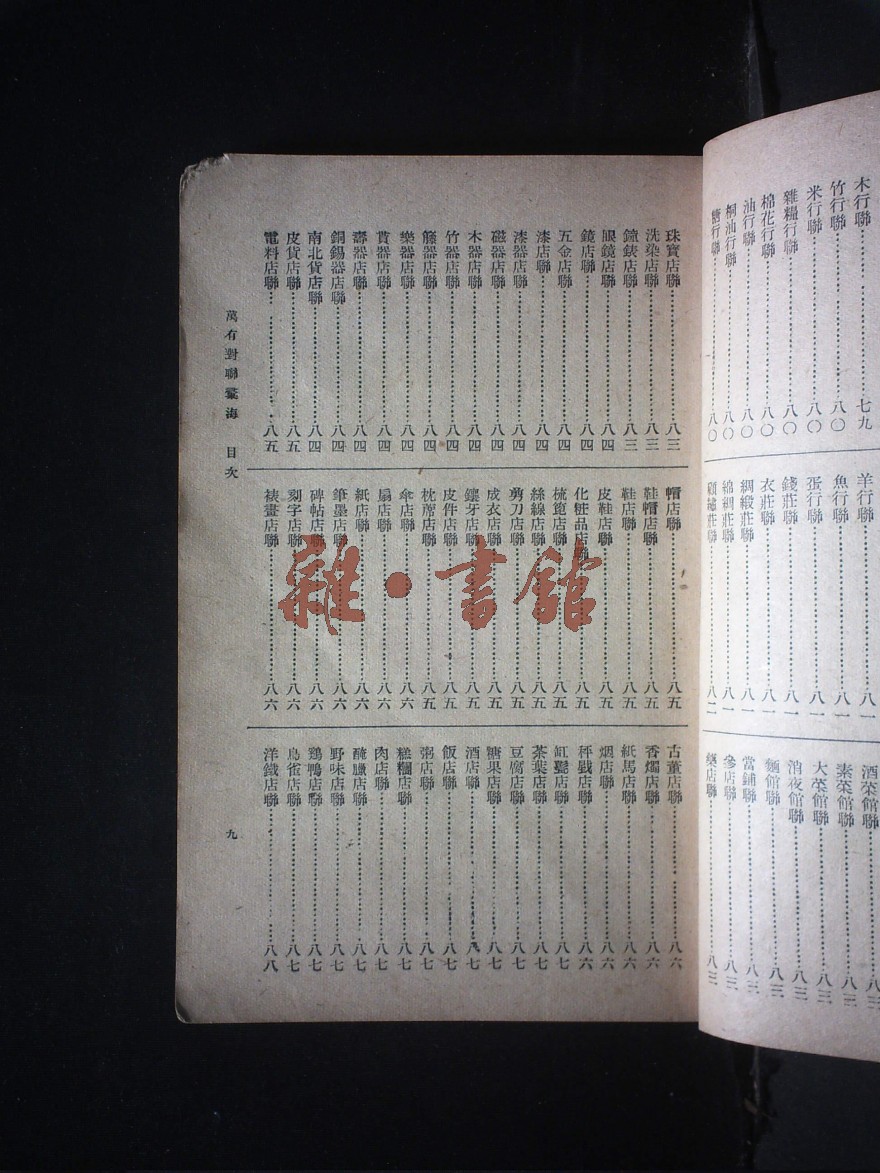 木行聯……七九
竹行聯……八〇
米行聯……八〇
雜糧行聯……八〇
棉花行聯……八〇
油行聯……八〇
桐油行聯……八〇
糖行聯……八〇
羊行聯……八一
魚行聯……八一
蛋行聯……八一
錢莊聯……八一
綢緞莊聯……八一
衣莊聯……八一
綿綢莊聯……八一
顧繡莊聯……八二
酒菜館聯……八三
素菜館聯……八三
大菜館聯……八三
消夜館聯……八三
麵館聯……八三
當鋪聯……八三
參店聯……八三
藥店聯……八三
珠寶店聯……八三
洗染店聯……八三
鐘錶店聯……八三
眼鏡店聯……八四
鏡店聯……八四
五金店聯……八四
漆店聯……八四
漆器店聯……八四
磁器店聯……八四
木器店聯……八四
竹器店聯……八四
籐器店聯……八四
樂器店聯……八四
賃器店聯……八四
壽器店聯……八四
銅錫器店聯……八四
南北貨店聯……八四
皮貨店聯……八五
電料店聯……八五
帽店聯……八五
鞋帽店聯……八五
鞋店聯……八五
皮鞋店聯……八五
化粧品店聯……八五
梳篦店聯……八五
絲線店聯……八五
剪刀店聯……八五
成衣店聯……八五
鑲牙店聯……八五
皮件店聯……八五
枕蓆店聯……八五
傘店聯……八六
扇店聯……八六
紙店聯……八六
筆墨店聯……八六
碑帖店聯……八六
刻字店聯……八六
裱畫店聯……八六
古董店聯……八六
香燭店聯……八六
紙馬店聯……八六
烟店聯……八六
秤戥店聯……八六
缸甏店聯……八七
茶葉店聯……八七
豆腐店聯……八七
糖果店聯……八七
酒店聯……八七
飯店聯……八七
粥店聯……八七
糕糰店聯……八七
肉店聯……八七
醃臘店聯……八七
野味店聯……八七
鷄鴨店聯……八七
鳥雀店聯……八七
洋鐵店聯……八八
萬有對聯彙海　目次
九
雜·書館